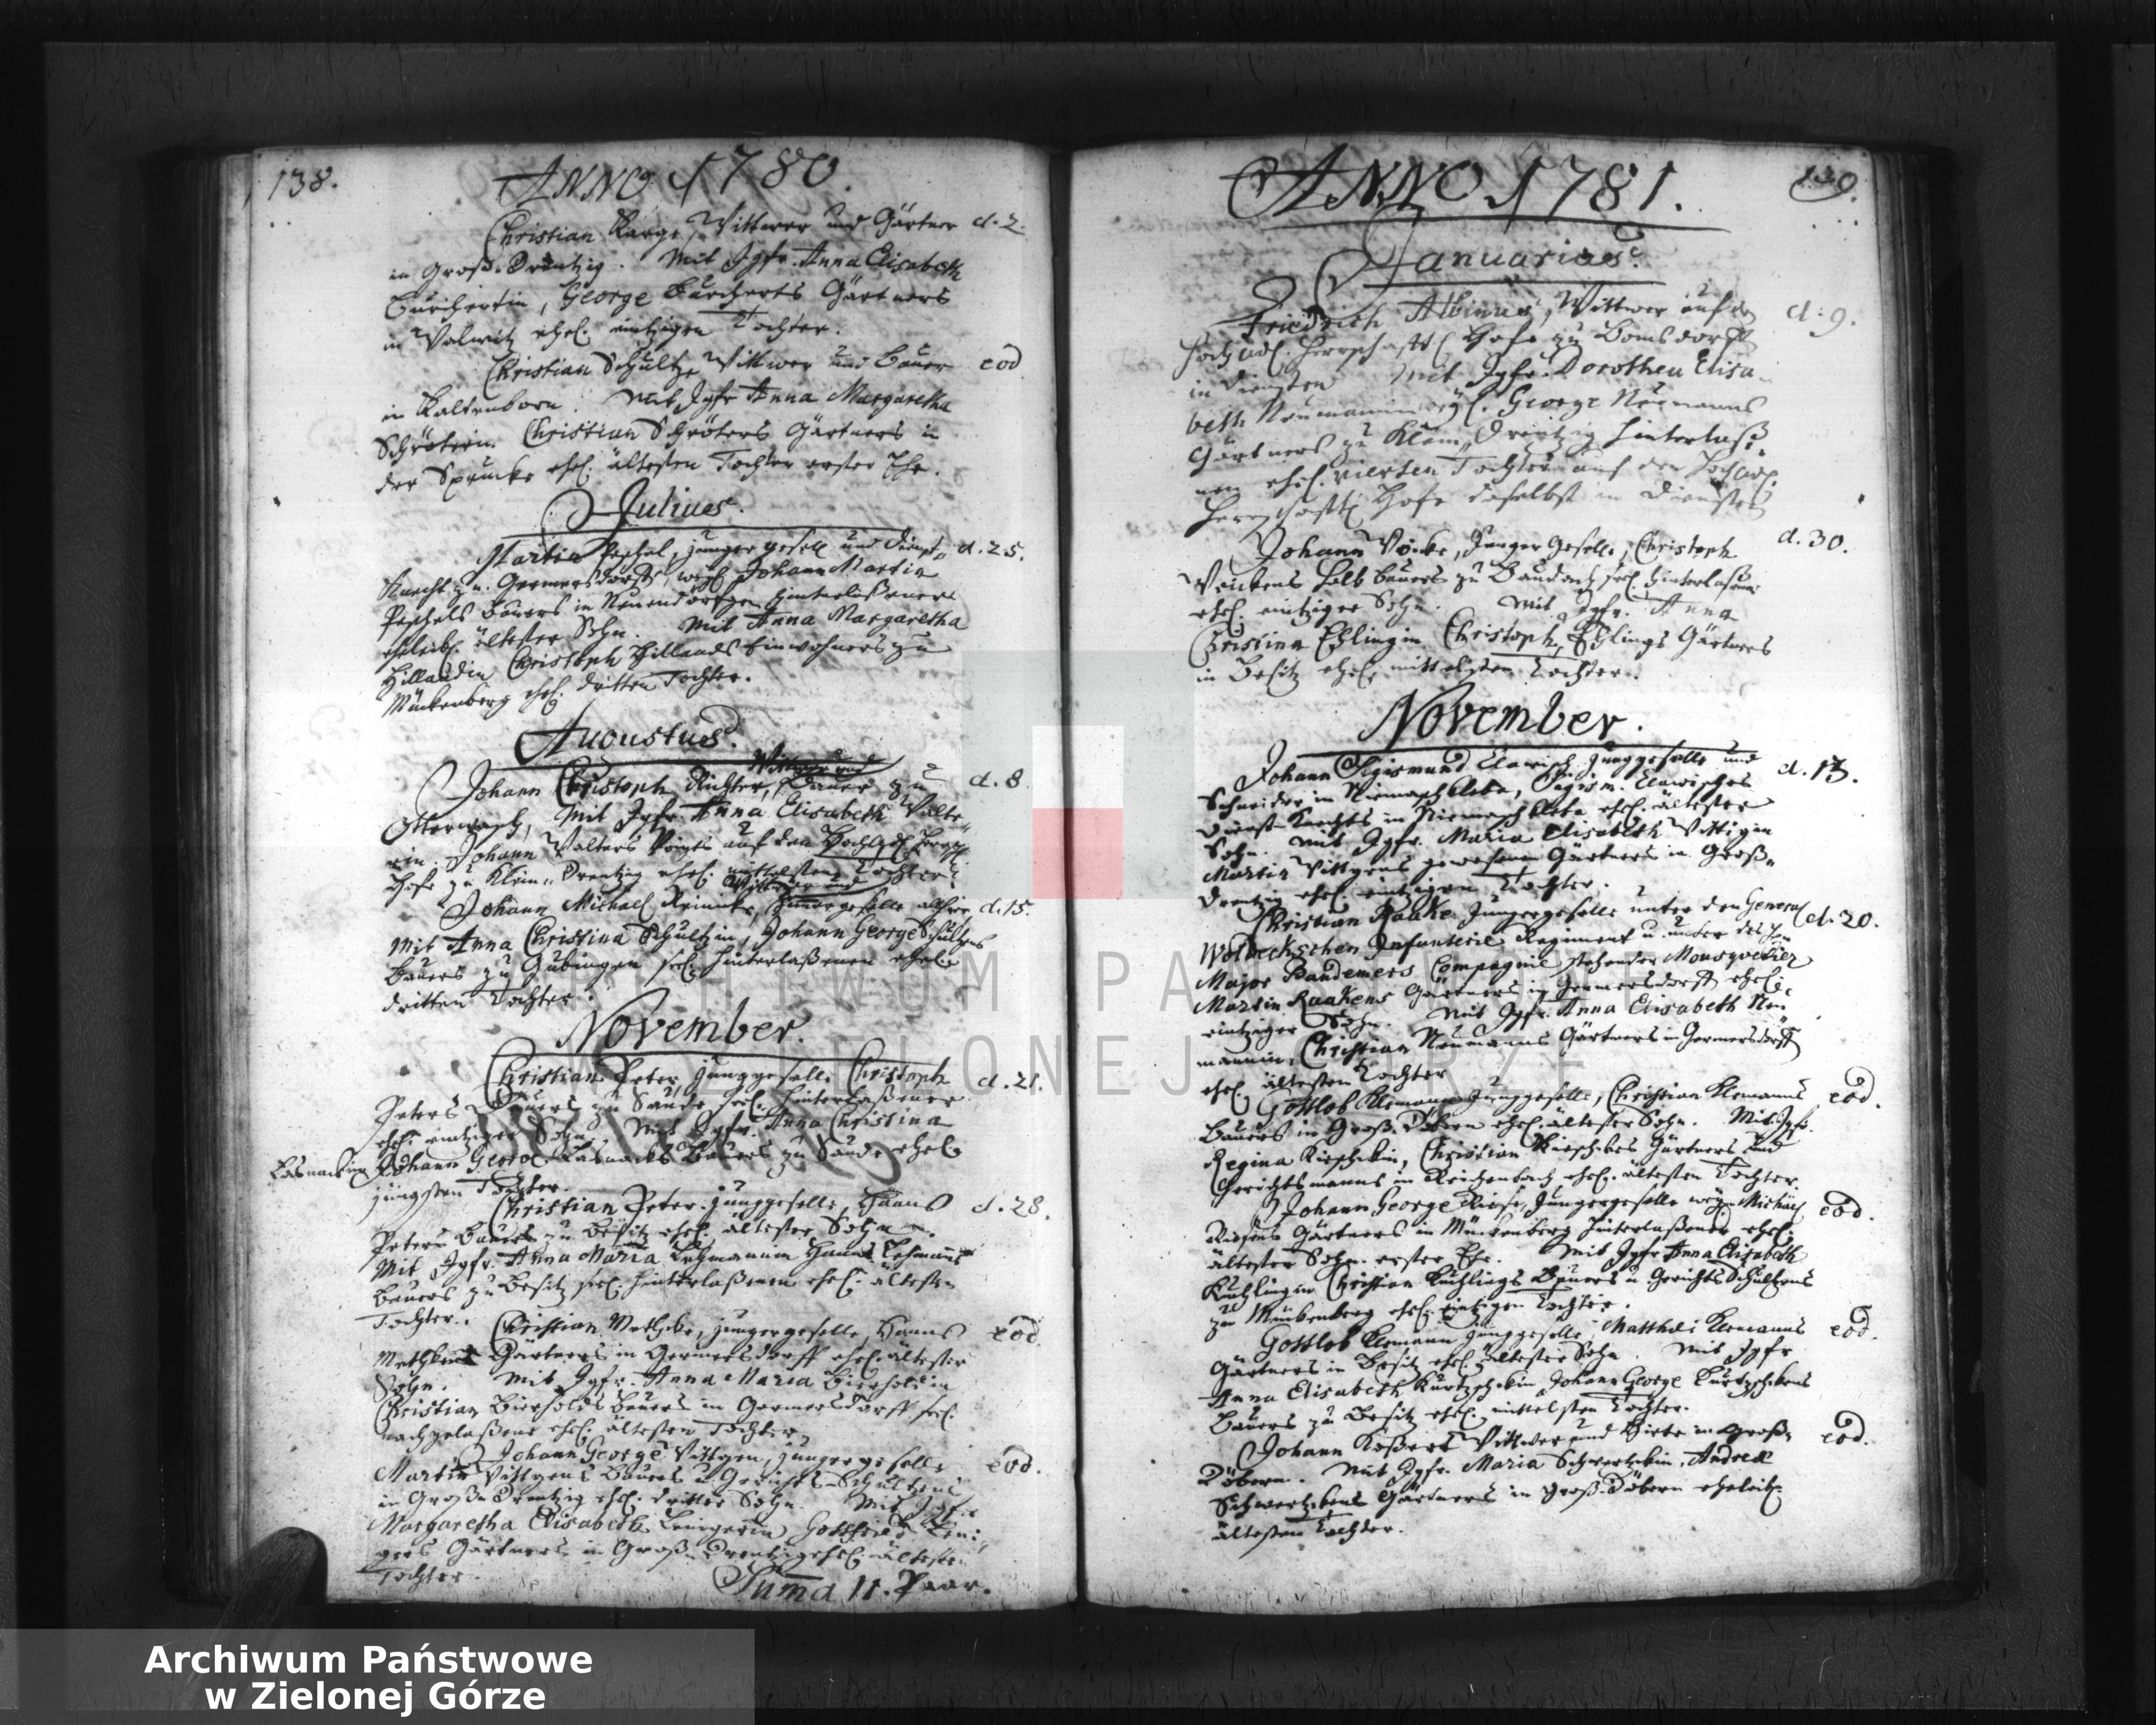 138.
ANNO 1780.
Christian Karge, Wittwer und Gärtner d. 2.
in Groß-Drentzig. Mit Jgfr. Anna Elisabeth
Burchertin, George Burcherts Gärtners
in Valwitz ehel. eintzigen Tochter.
Christian Schultze Wittwer und Bauer eod
in Kaltenborn. Mit Jgfr Anna Margaretha
Schröterin. Christian Schröters Gärtners in
der Sprucke ehel. ältesten Tochter erster Ehe.
Julius.
Martin Peschel, junger gesell und Dienst- d. 25.
Knecht zu Germersdorff, Johann Martin
Peschels Bauers in hinterlaßener
ältester Sohn. Mit Anna Margaretha
Hillandin Christoph Hillands Einwohners zu
Mückenberg ehel. dritten Tochter.
Augustus.
Wittwer und
Johann Christoph Richter, Bauer zu d. 8
Otterwasch, Mit Jgfr Anna Elisabeth Walte-
rin, Johann Walters Voigts auf dem Hochadl. Herrsch.
Hofe zu Klein-Drentzig ehel. mittelsten Tochter.
Wittwer und
Johann Michael Reinicke, Junger geselle d. 15.
Mit Anna Christina Schultzin, Johann George Schultzens
Bauers zu Gubingen seel. hinterlaßenen ehel.
dritten Tochter.
November.
Christian Peter, Junggeselle, Christoph d. 21.
Peters Bauers zu Saude seel. hinterlaßener
ehel. eintziger Sohn. Mit Jgfr. Anna Christina
Lasnackin Johann George Lasnacks Bauers zu Saude ehel.
jüngsten Tochter.
Christian Peter. Junggeselle, Hanns d. 28.
Peters Bauers zu Besitz ehel. ältester Sohn.
Mit Jgfr. Anna Maria Lehmannin Hanns Lehmanns
Bauers zu Besitz seel. hinterlaßenen ehel. ältesten
Tochter.
Christian Methcke, junger geselle, Hanns eod.
Gärtners in Germersdorff ehel. ältester
Sohn. Mit Jgfr. Anna Maria Bierholdin
Christian Bierholds Bauers in Germersdorff seel.
nachgelaßene ehel. ältesten Tochter
Johann George Wittgen, junger geselle eod.
Martin Wittgens Bauers u. Gerichts-Schultzens
in Groß-Drentzig ehel. dritter Sohn. Mit Jgfr.
Margaretha Elisabeth Leupgerin, Gottfried
Gärtners in Groß-Drentzig ehel. ältesten
Tochter.
Suma 11. Paar.
139.
ANNO 1781.
Januarius.
Friedrich Albinus, Wittwer auf dem d. 9.
Hochadl. Herrschaftl. Hofe zu Bomsdorff
in Diensten Mit Jgfr. Dorothea Elisa-
beth Neumannin George Neumanns
Gärtners zu Klein-Drentzig hinterlaß-
nen ehel. vierten Tochter auf dem Hochadl.
Herrschaftl. Hofe daselbst in Diensten
Johann Vöcke, Junger Geselle, Christoph d. 30.
halb Bauers zu Baudach seel. hinterlaßener
ehel. eintziger Sohn. Mit Jgfr. Anna
Christina Ehlingin Christoph Ehlings Gärtners
in Besitz ehel. mittelsten Tochter.
November.
Johann Sigismund Clavisch. Junggeselle und d. 13.
Schneider in Niemaschkleba, Sigism. Clavisches
Dienst-Knechts in Niemaschkleba ehel. ältester
Sohn. Mit Jgfr. Maria Elisabeth Wittigen
Martin Wittgens gewesenen Gärtners in Groß-
Drentzig ehel. eintzigen Tochter.
Christian Raake Junger geselle unter dem General d. 20.
Woldeckschen Infanterie Regiment u. unter des Hrn.
Major Bandemers Compagnie stehender Mousqvetier
Martin Raakens Gärtners in Germersdorff ehel.
eintziger Sohn. Mit Jgfr. Anna Elisabeth Neu-
mannin, Christian Neumanns Gärtners in Germersdorff
ehel. ältesten Tochter
Gottlob Klemann Junggeselle, Christian Klemanns eod.
Bauers in Groß-Döbern ehel. ältester Sohn. Mit Jgfr.
Regina Kieschkin, Christian Kieschkes Gärtners und
Gerichtsmanns in Reichenbach ehel. ältesten Tochter.
Johann George Riese, Junger geselle Michael eod.
Riesens Gärtners in Mückenberg hinterlaßener ehel.
ältester Sohn erster Ehe. Mit Jgfr Anna Elisabeth
Kuchlingin Christian Kuchlings Bauers u. Gerichts Schultzens
zu Mückenberg ehel. eintzigen Tochter.
Gottlob Klemann Junggeselle, Matthäi Klemanns eod.
Gärtners in Besitz ehel. ältester Sohn. Mit Jgfr
Anna Elisabeth Kurtzschkin Johann George Kurtzschkens
Bauers zu Besitz ehel. mittelsten Tochter.
Johann Koßert Wittwer und Hirte in Groß- eod.
Döbern. Mit Jgfr. Maria Schwertzkin, Andreæ
Schwertzkens Gärtners in Groß-Döbern eheleibl.
ältesten Tochter.
ARCHIWUM PAŃSTWOWE
W ZIELONEJ GÓRZE
Archiwum Państwowe
w Zielonej Górze